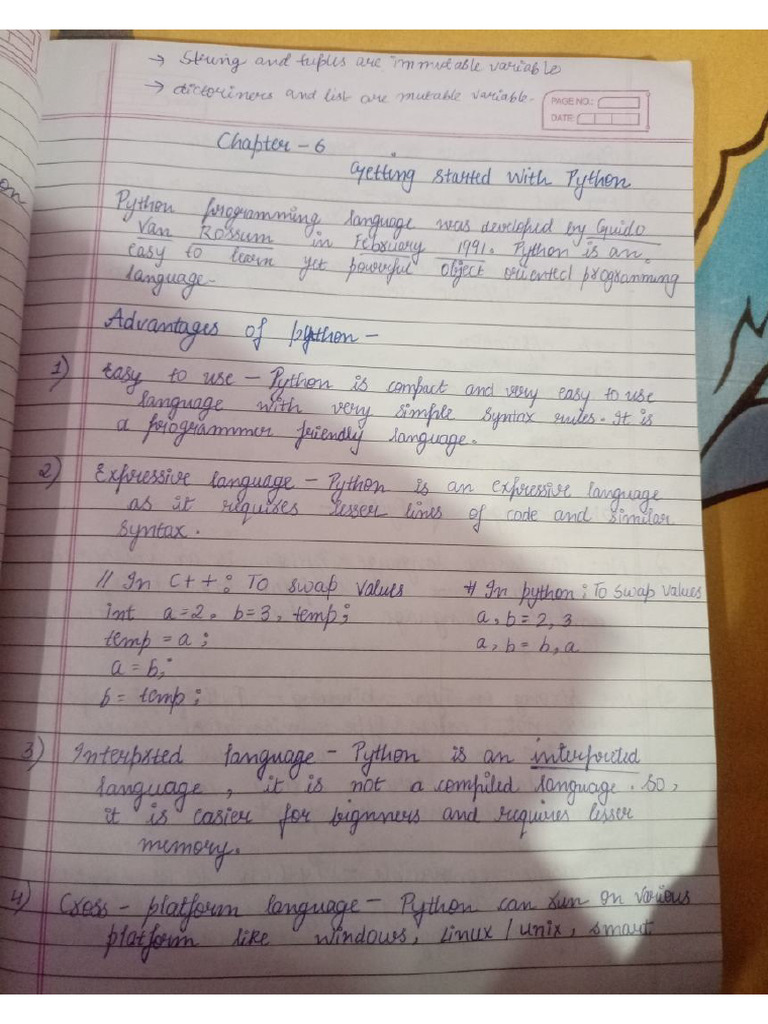 → String and tuples are immutable variable
→ dictoriners and list are mutable variable.
PAGE NO.:
DATE:
Chapter - 6
Getting started with Python
Python programming language was developed by Guido
Van Rossum in February 1991. Python is an
easy to learn yet powerful object oriented programming
language.
Advantages of python -
1) Easy to use - Python is compact and very easy to use
language with very simple syntax rules. It is
a programmer friendly language.
2) Expressive language - Python is an expressive language
as it requires lesser lines of code and similar
syntax.
// In C++: To swap values
int a=2, b=3, temp;
temp = a;
a = b;
b = temp;
# In python: To swap values
a, b = 2, 3
a, b = b, a
3) Interpsted language - Python is an interpreted
language, it is not a compiled language. So,
it is easier for bignners and requires lesser
memory.
4) Cross-platform language - Python can run on various
platform like windows, Linux/unix, smart